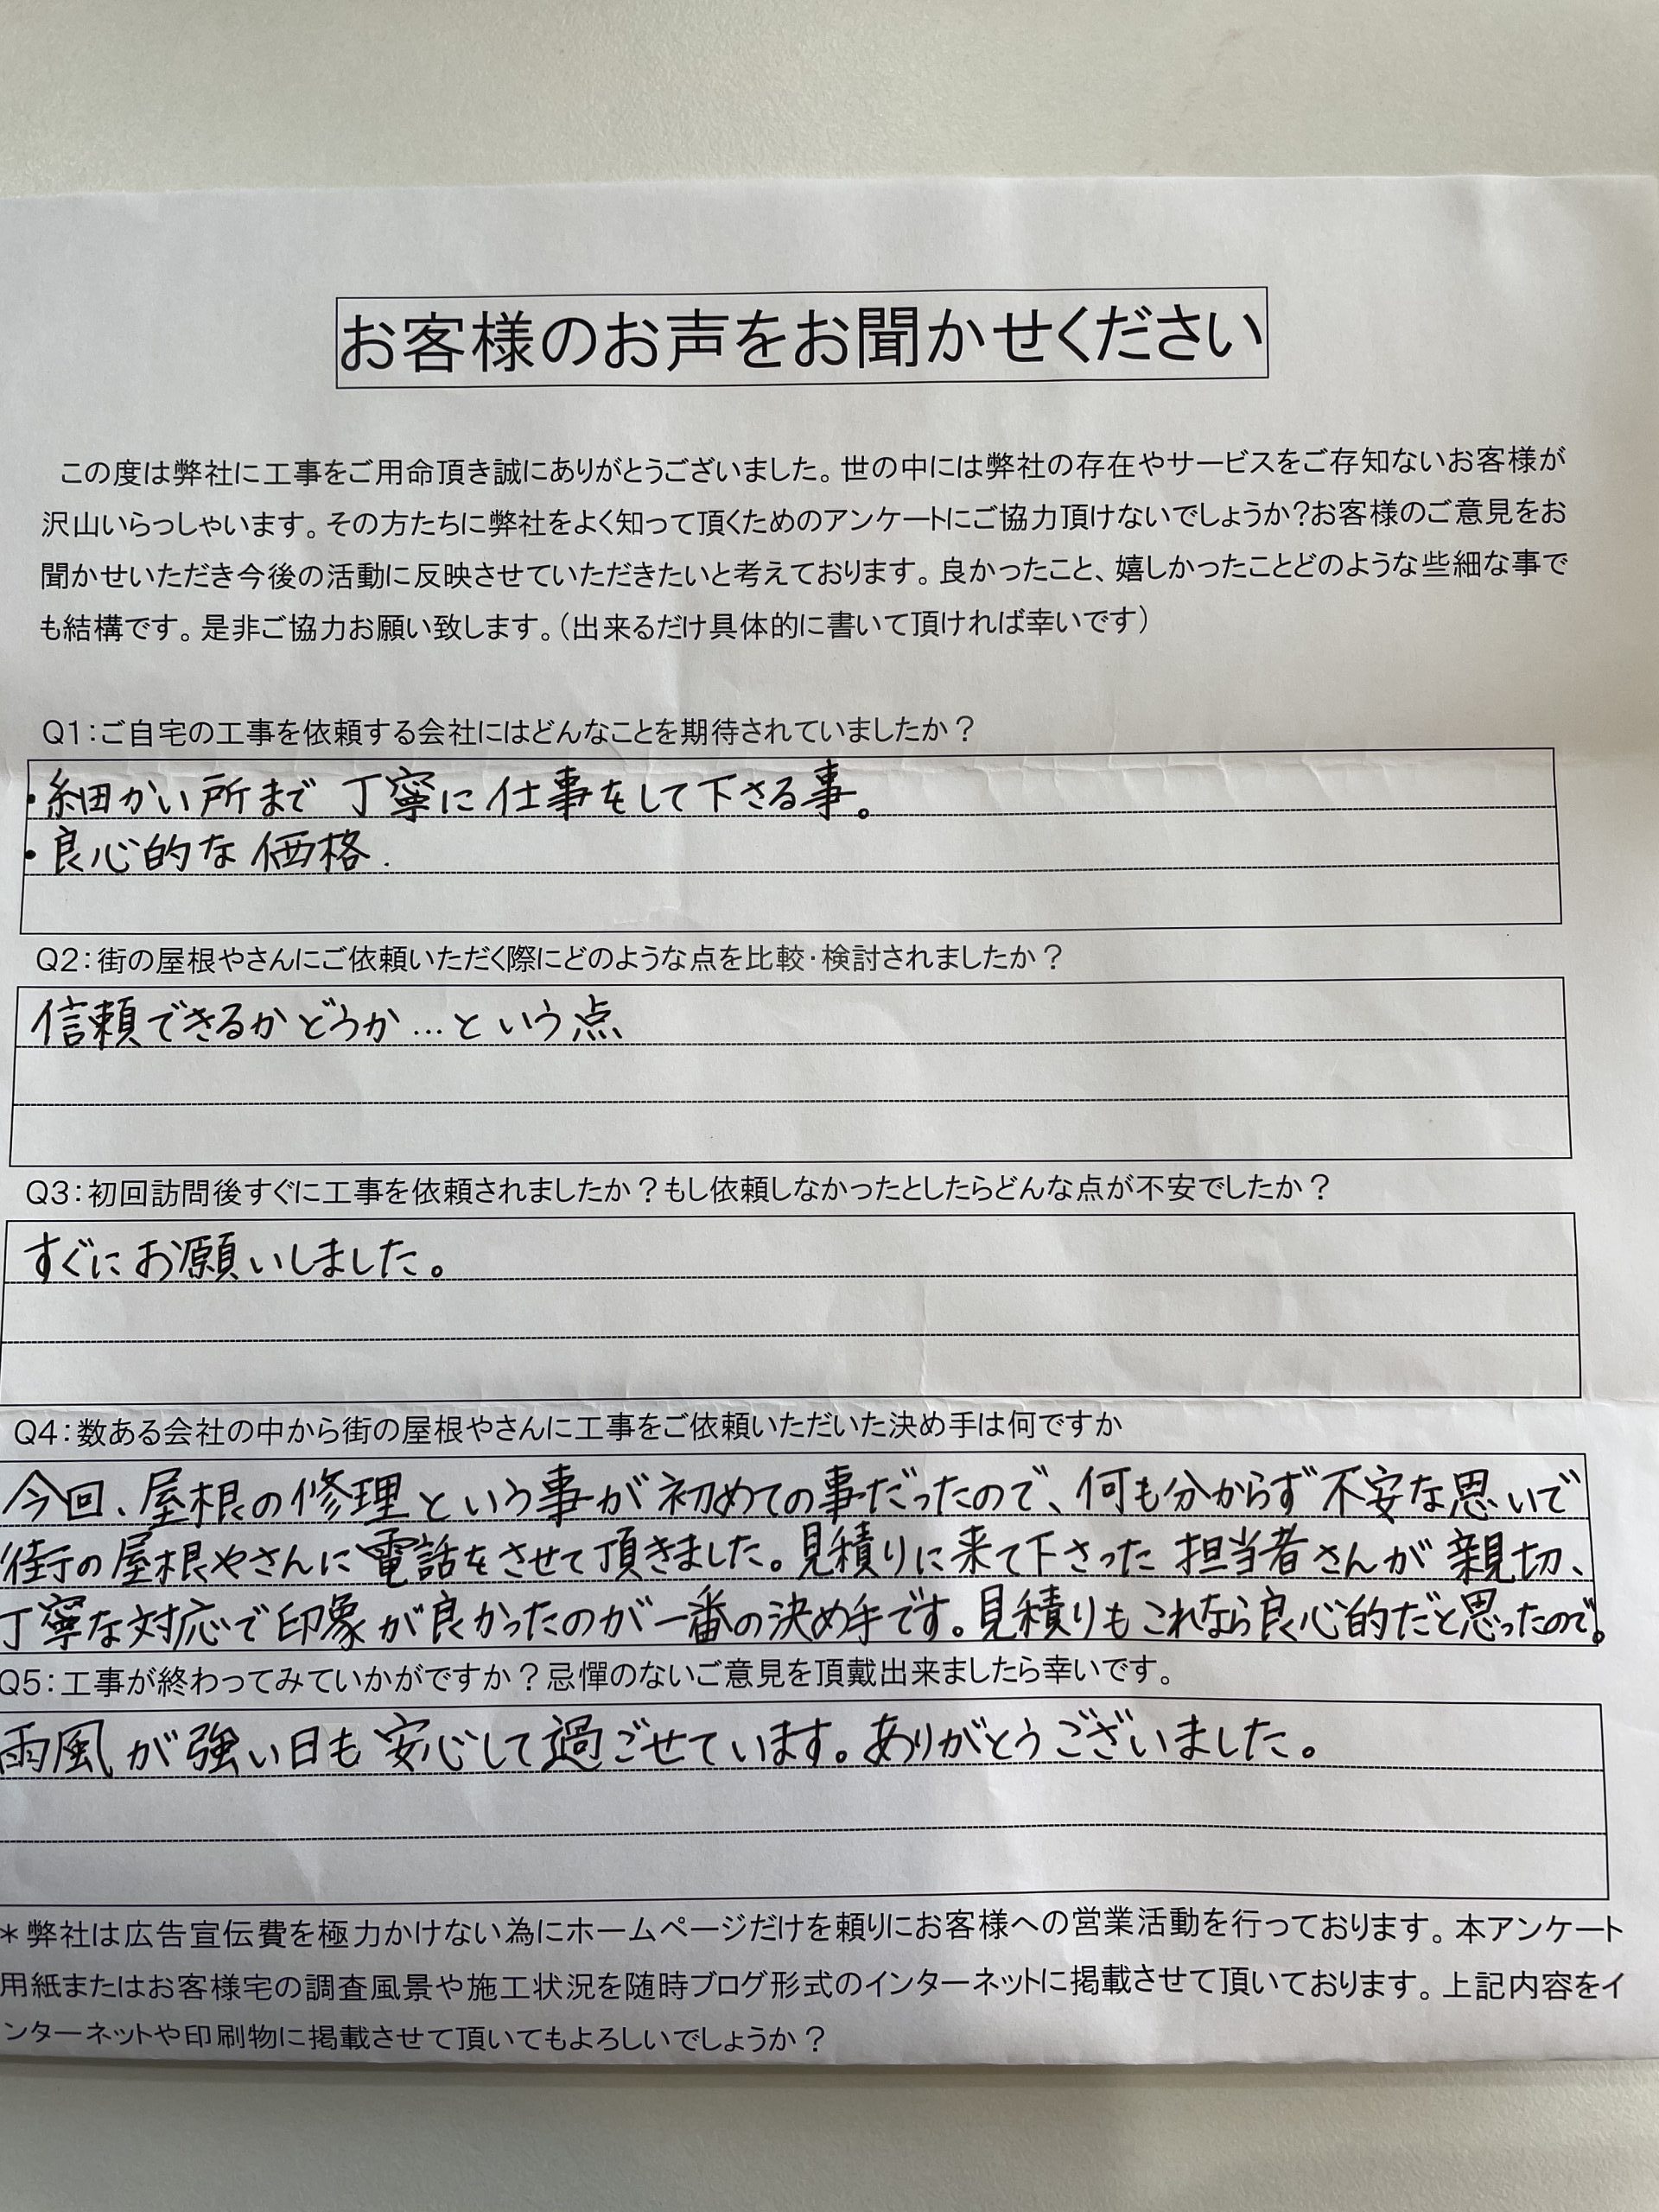 お客様のお声をお聞かせください
この度は弊社に工事をご用命頂き誠にありがとうございました。世の中には弊社の存在やサービスをご存知ないお客様が
沢山いらっしゃいます。その方たちに弊社をよく知って頂くためのアンケートにご協力頂けないでしょうか?お客様のご意見をお
聞かせいただき今後の活動に反映させていただきたいと考えております。良かったこと、嬉しかったことどのような些細な事で
も結構です。是非ご協力お願い致します。（出来るだけ具体的に書いて頂ければ幸いです）
Q1：ご自宅の工事を依頼する会社にはどんなことを期待されていましたか？
・細かい所まで 丁寧に仕事をして下さる事。
・良心的な価格.
Q2：街の屋根やさんにご依頼いただく際にどのような点を比較・検討されましたか？
信頼できるかどうか…という点
Q3：初回訪問後すぐに工事を依頼されましたか？もし依頼しなかったとしたらどんな点が不安でしたか？
すぐにお願いしました。
Q4：数ある会社の中から街の屋根やさんに工事をご依頼いただいた決め手は何ですか
今回、屋根の修理という事が初めての事だったので、何も分からず不安な思いで
街の屋根やさんに電話をさせて頂きました。見積りに来て下さった担当者さんが親切、
丁寧な対応で印象が良かったのが一番の決め手です。見積りもこれなら良心的だと思ったので。
Q5：工事が終わってみていかがですか？忌憚のないご意見を頂戴出来ましたら幸いです。
雨風が強い日も安心して過ごせています。ありがとうございました。
＊弊社は広告宣伝費を極力かけない為にホームページだけを頼りにお客様への営業活動を行っております。本アンケート
用紙またはお客様宅の調査風景や施工状況を随時ブログ形式のインターネットに掲載させて頂いております。上記内容をイ
ンターネットや印刷物に掲載させて頂いてもよろしいでしょうか？